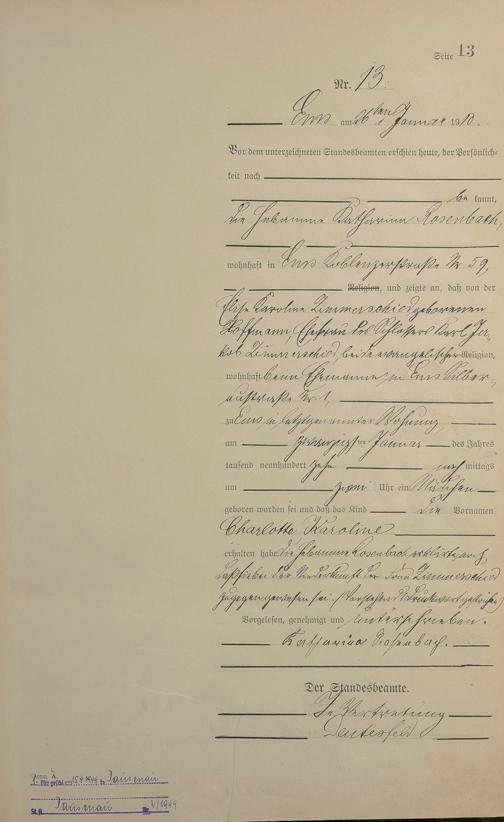 Seite 13
Nr. 13.
Ems am 26ten Januar 1910.
Vor dem unterzeichneten Standesbeamten erschien heute, der Persönlich-
keit nach
be kannt,
die Hebamme Katharina Rosenbach,
wohnhaft in Ems Koblenzerstraße Nr 59,
Religion, und zeigte an, daß von der
Elise Karoline Zimmerschied geborenen
Hoffmann, Ehefrau des Schlossers Karl Ja-
kob Zimmerschied, beide evangelischer Religion,
wohnhaft beim Ehemanne, in Ems Silber-
austraße Nr 1,
zu Ems, in letztgenannter Wohnung
am zwanzigsten Januar des Jahres
tausend neunhundert zehn nach mittags
um zwei Uhr ein Mädchen
geboren worden sei und daß das Kind die Vornamen
Charlotte Karoline
erhalten habe. Die Hebamme Rosenbach erklärte noch,
daß sie bei der Niederkunft der Frau Zimmerschied
zugegen gewesen sei. (Vorstehend 1 Druckwort gestrichen)
Vorgelesen, genehmigt und unterschrieben.
Katharina Rosenbach.
Der Standesbeamte.
In Vertretung
1944
St.A. Nr. 2/1944